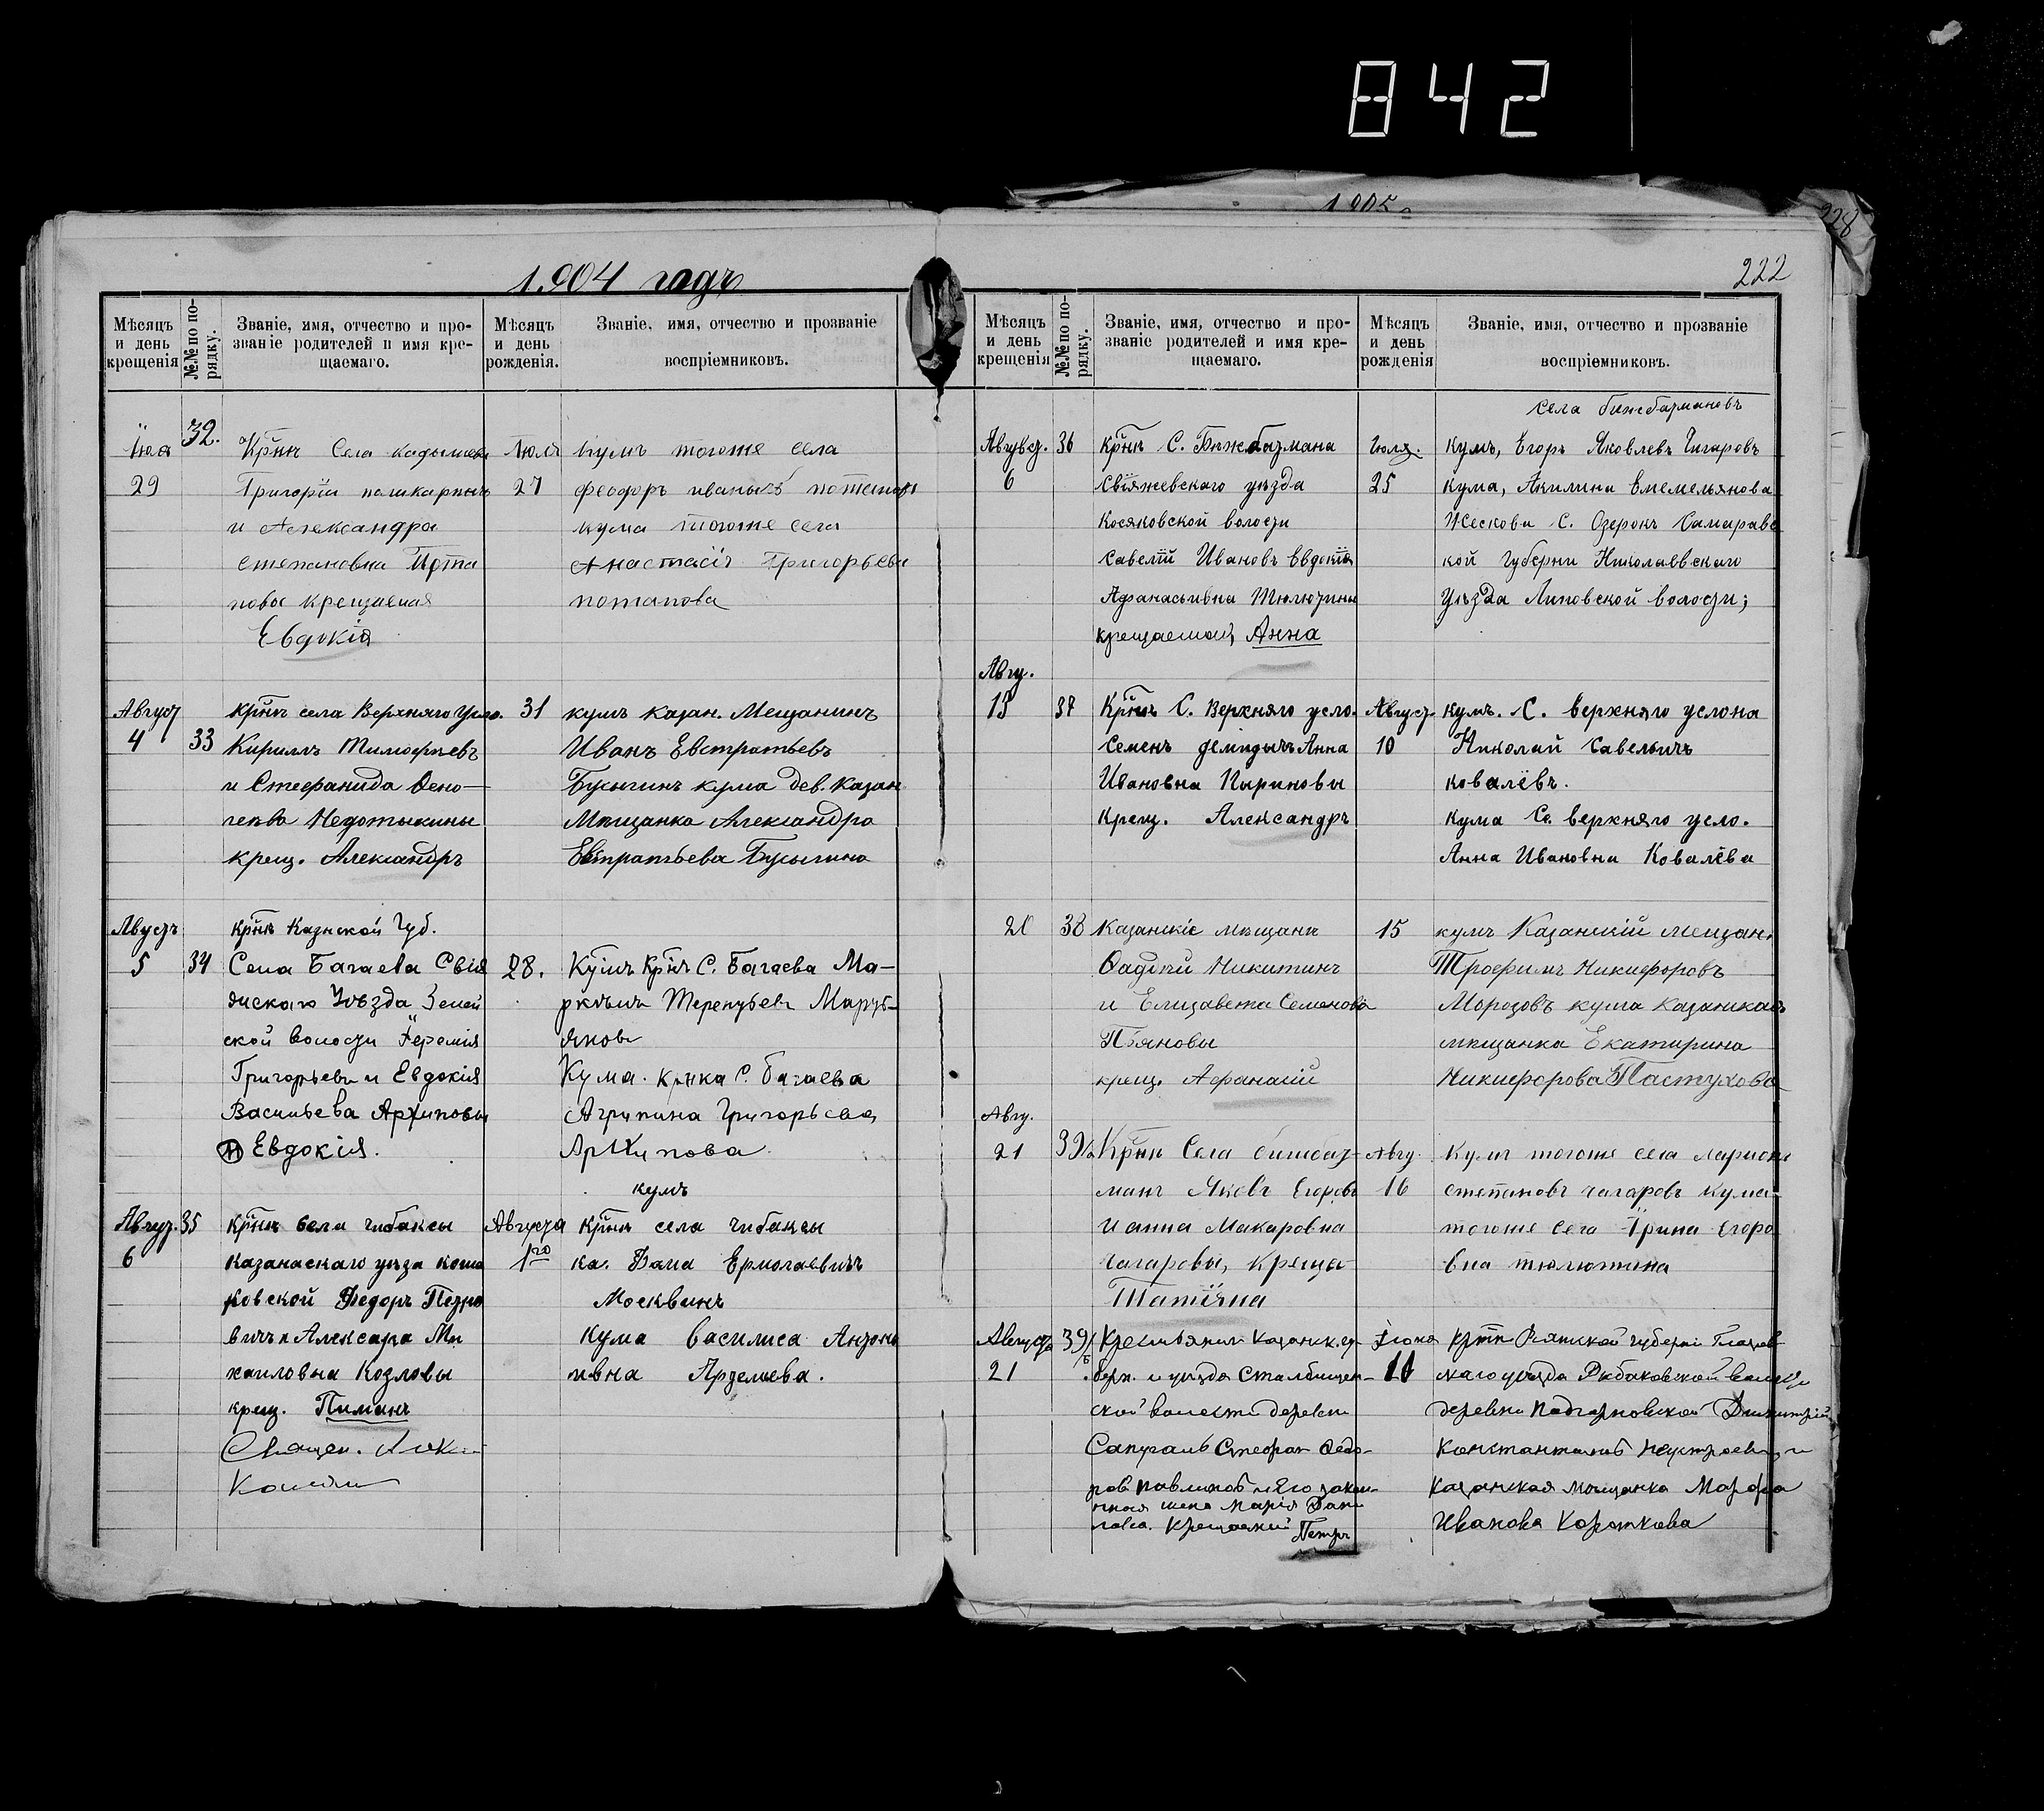 842
1905
228
1904 годъ
222
Мѣсяцъ и день крещенія
№№ по порядку.
Званіе, имя, отчество и прозваніе родителей и имя крещаемаго.
Мѣсяцъ и день рожденія.
Званіе, имя, отчество и прозваніе воспріемниковъ.
32.
Крн̃ъ Села
Григорій
и Александра
степановна
новы крещаемая
Евдокія
29
27
кумъ тогоже села
феодоръ иванычъ
кума тогоже села
Анастасія Григорьева
потапова
Август
4
33
крн̃ъ села Верхняго Усло.
Кириллъ Тимофѣевъ
и Стефанида
Недотыкины
крещ. Александръ
31
кумъ казан. Мещанинъ
Иванъ Евстратьевъ
Бусыгинъ кума дев. Казан
Мѣщанка Александра
Евстратьева Бусыгина
Августъ
5
34
крн̃ъ Казнской Губ.
Села Багаева Свія
жскаго Уѣзда
ской волости Іеремія
Григорьевъ и Евдокія
Васильева Архиповы
Евдокія.
28.
Кумъ Крнъ С. Багаева Ма-
Кума. Крнка С. багаева
Агрипина Григорьева
Архипова
Август.
6
35
крн̃ъ села чибаксы
казанаскаго уѣза
ковской Федоръ Петро
вичъ и Алексара Ми
хаиловна Козловы
крещ. Пиманъ
Священ.
Августа
1го
кумъ
крн̃ъ села чибаксы
Ермолаевичъ
Москвинъ
кума василиса Антоно
ивна
Мѣсяцъ и день крещенія
№№ по порядку.
Званіе, имя, отчество и прозваніе родителей и имя крещаемаго.
Мѣсяцъ и день рожденія
Званіе, имя, отчество и прозваніе воспріемниковъ.
6
36
крн̃ъ С. Бижбазмана
Свіяжевскаго уѣзда
Косяковской волости
Савелій Ивановъ Евдокія
Афанасьивна Тюлютины
крещаемой Анна
Іюля.
25
кумъ, Егоръ Яковлевъ Чигаровъ
кума, Акилина Емемельянова
С. Озерокъ Самаравс
кой Губерни Николаевскаго
Уѣзда Липовской волости;
Авгу.
15
37
Крн̃ъ С. Верхняго усло.
Семенъ демидычъ Анна
Ивановна Пыриковы
крещ. Александръ
Август.
10
кумъ. С. верхняго услона
Николай Савельичъ
ковалёвъ.
кума С. верхняго усло.
Анна Ивановна Ковалёва
20
38
Казанскіе мѣщане
Фадѣй Никитинъ
и Елизавета Семенова
Пьяновы
крещ. Афанасій
15
кумъ Казанскій мещан.
Трофимъ Никифоровъ
Морозовъ кума казанкая
мѣщанка Екатирина
Никифорова Пастухова
Авгу.
21
39
Крн̃ъ Села бишбаз-
манъ Яковъ Егоровъ
и анна Макаровна
чагаровы, крещы
Татияна
Авгу.
16
Кумъ тогоже села
степановъ чагаровъ кума
тогоже села Ірина Егоро
вна тюлютина
Августа
21
39/б
Крестьянин Казанск. гу-
берн. и уѣзда Столбищен-
ской волости деревни
Стефан Федо-
ров Павлинов и Его закон-
ная жена Марія
Крещаемый Петръ
Вятской губерніи Глазов
скаго уѣзда Рыбаковской волости
деревни Димитрій
Константинов
Казанская мѣщанка Марфа
Иванова Короткова